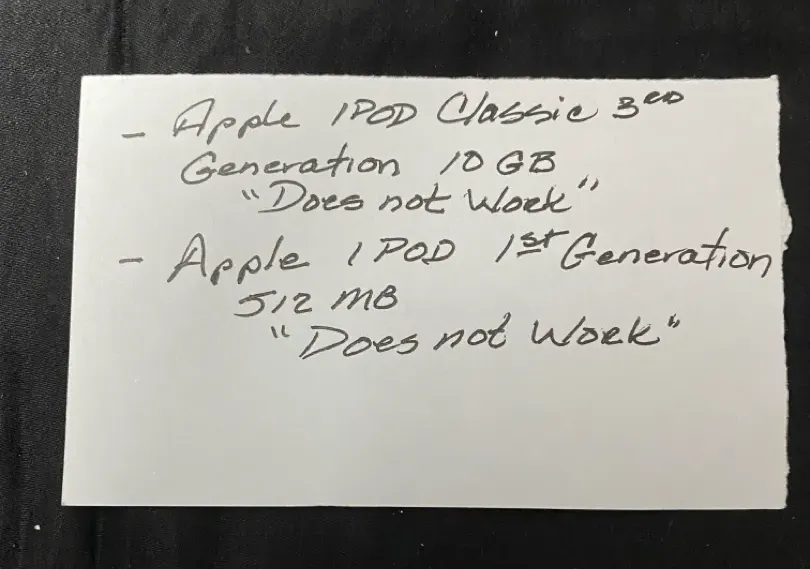 - Apple IPOD Classic 3RD
Generation 10 GB
"Does not Work"
- Apple IPOD 1st Generation
512 MB
"Does not Work"